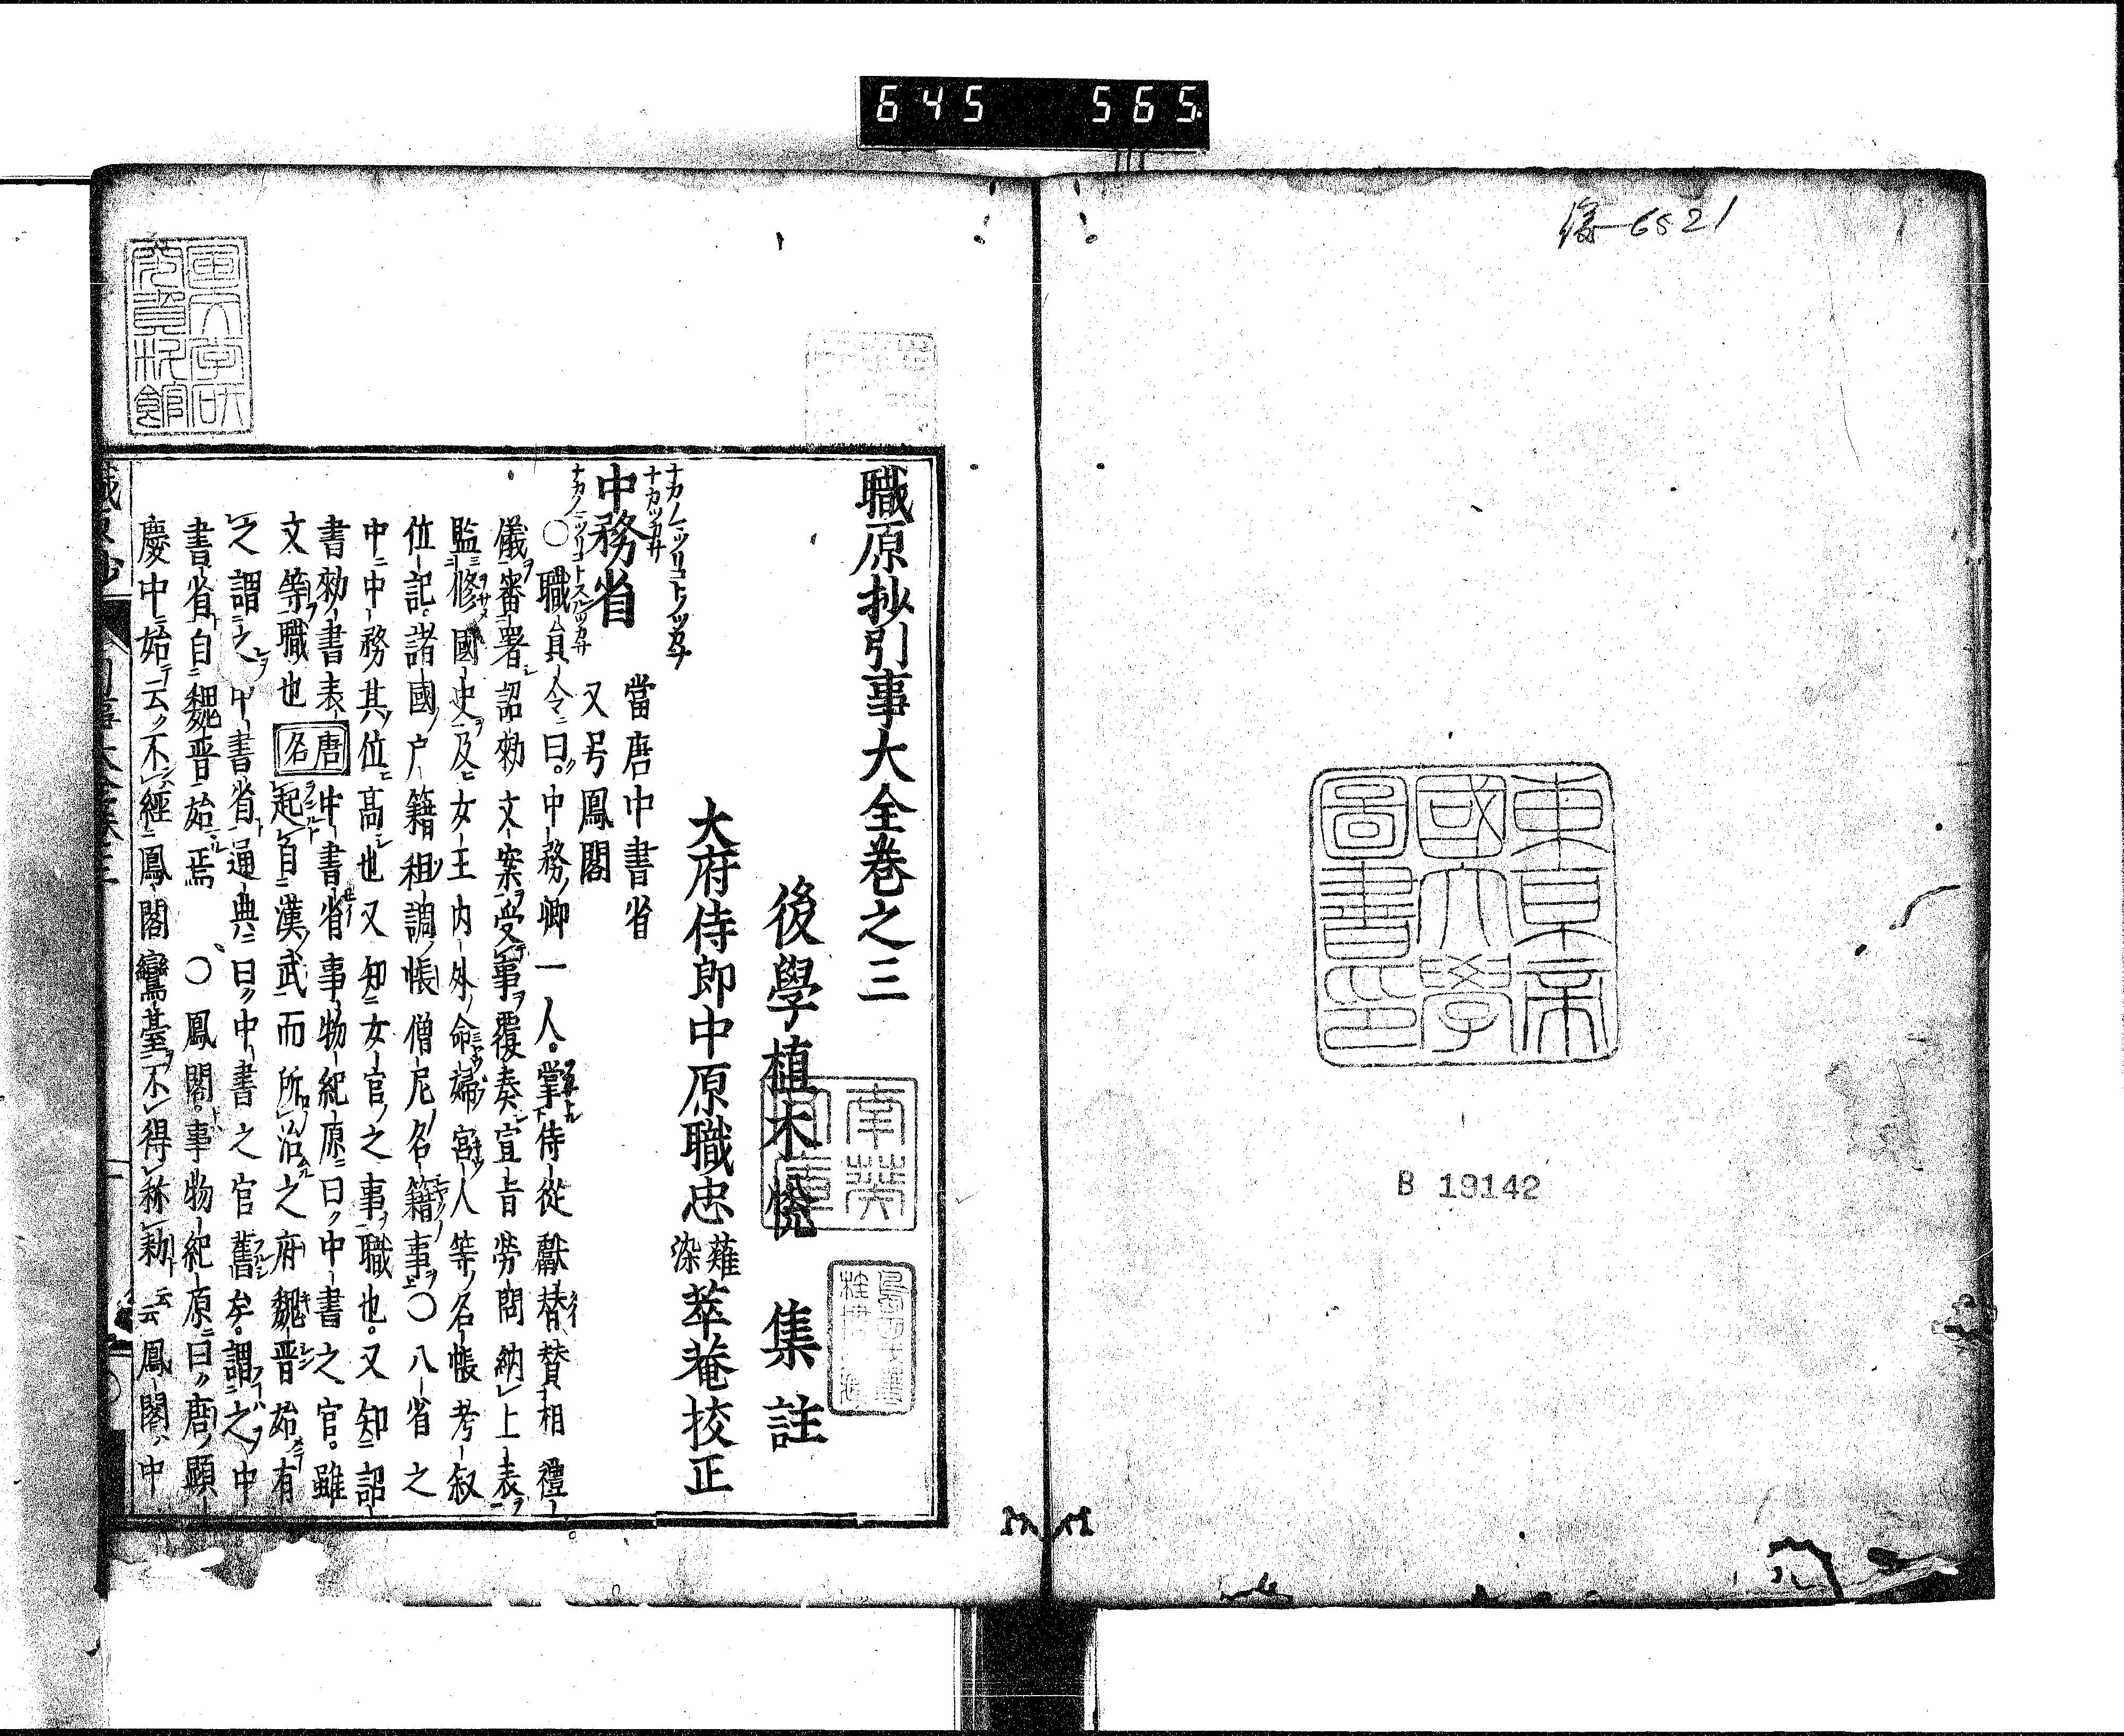 645 565.
6521
東京帝
國大學
圖書印
B 19142
職原抄引事大全卷之三
後學植木悅 集註
大府侍郎中原職忠薙染萃菴挍正
ナカノマツリコトノツカサ
ナカツカサ
中務省 當唐中書省
ナカノマツリコトスルツカサ
又号鳳閣
〇職員令曰中務卿一人掌侍從獻替賛相禮
儀審署詔勅文案受事覆奏宣旨勞問納上表
監修國史及女王内外命婦宮人等名帳考叙
位記諸國户籍租調帳僧尼名籍事〇八省之
中中務其位高也又知女官之事職也又知詔
書勅書表唐中書省事物紀原曰中書之官雖
文等職也名起自漢武而所治之府魏晋始有
之謂之中書省通典曰中書之官舊矣謂之中
書省自魏晋始焉 〇鳳閣事物紀原曰唐顯
慶中始云不經鳳閣鸞臺不得称勅云鳳閣中